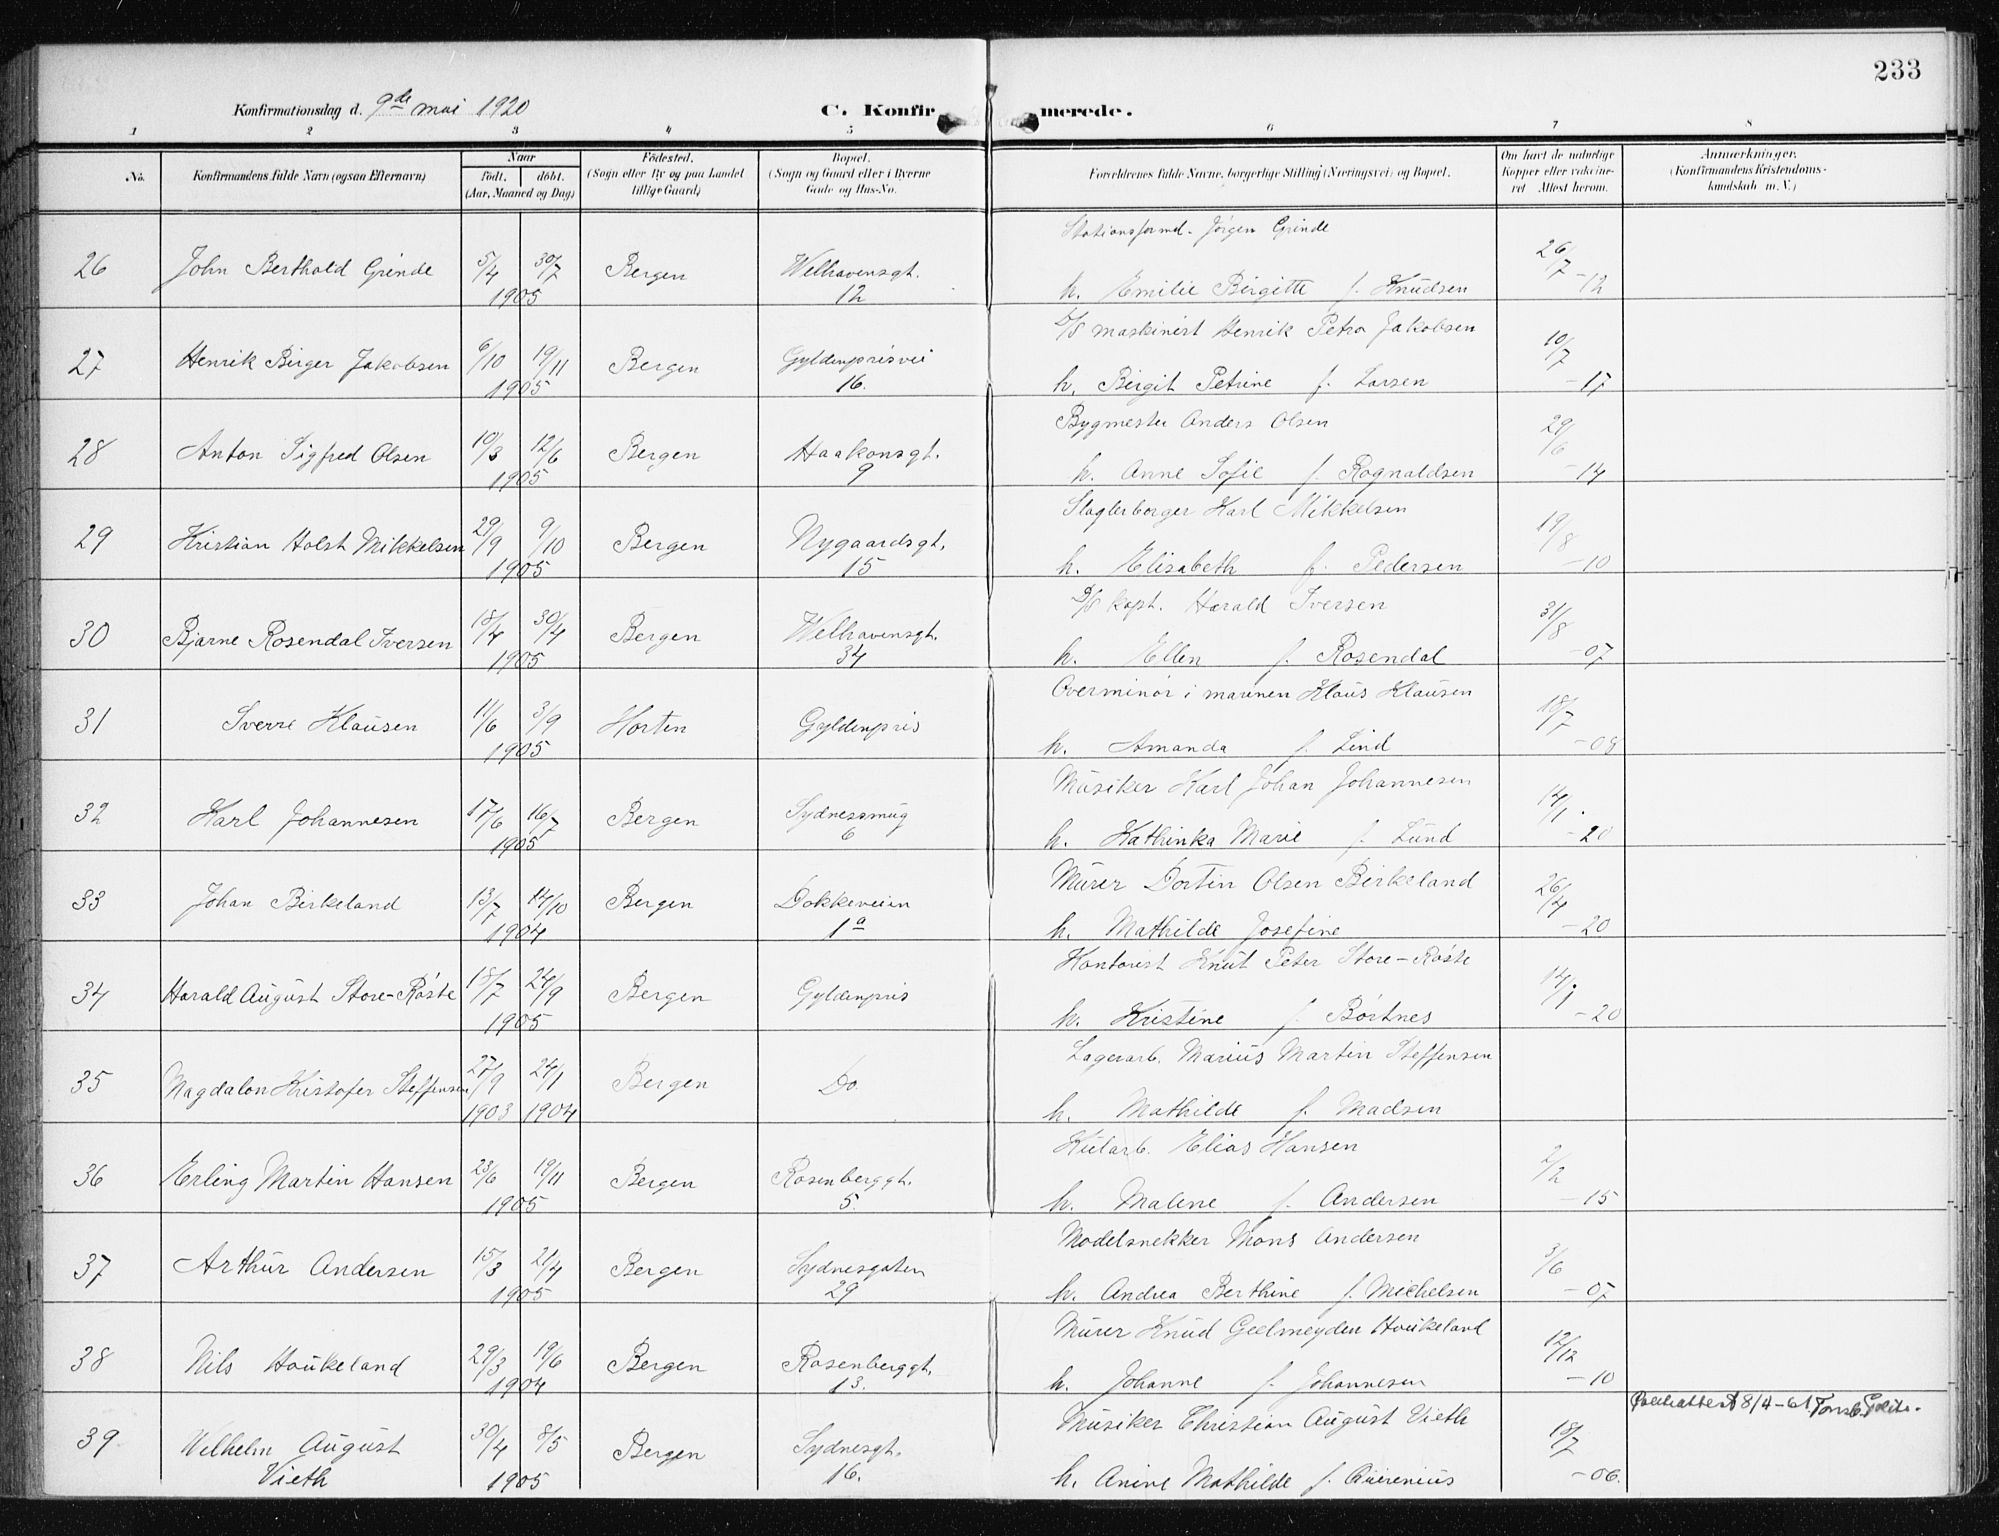 233
Konfirmationsdag d. 9de mai 1920
C. Konfirmerede.
1 2 3 4 5 6 7 8
No.
Konfirmandens fulde Navn (ogsaa Efternavn)
Naar
født. døbt.
(Aar, Maaned og Dag)
Fødested.
(Sogn eller By og paa Landet
tillige Gaard)
Bopæl.
(Sogn og Gaard eller i Byerne
Gade og Hus-No.
Forældrenes fulde Navne, borgerlige Stilling (Næringsvei) og Bopæl.
Om havt de naturlige
Kopper eller vaccine-
ret Attest herom.
Anmærkninger.
(Konfirmandens Kristendoms-
kundskab m. V.)
Stationsformd. Jörgen Grinde
26 John Berthold Grinde 5/4 30/7 Bergen Welhavensgt. 26/7
1905 12 h. Emilie Birgitte f. Knudsen -12
D/S maskinist Henrik Petra Jakobsen
27 Henrik Birger Jakobsen 6/10 19/11 Bergen Gyldenprisvei 10/7
1905 16. h. Birgit Petrine f. Larsen -17
Bygmester Anders Olsen
28 Anton Sigfred Olsen 10/3 12/6 Bergen Haakonsgt. 29/6
1905 9 h. Anne Sofie f. Rognaldsen -14
Slagterborger Karl Mikkelsen
29 Kristian Holst Mikkelsen 29/9 9/10 Bergen Nygaardsgt. 19/8
1905 15 h. Elisabeth f. Pedersen -10
D/S kapt. Harald Iversen
30 Bjarne Rosendal Iversen 18/4 30/4 Bergen Welhavensgt. 31/8
1905 34 h. Ellen f. Rosendal -07
Overminör i marinen Klaus Klausen
31 Sverre Klausen 11/6 3/9 Horten Gyldenpris 18/7
1905 h. Amanda f. Lind -08
Musiker Karl Johan Johannesen
32 Karl Johannesen 17/6 16/7 Bergen Sydnessmug 14/1
1905 6 h. Kathinka Marie f. Lund -20
Murer Dortin Olsen Birkeland
33 Johan Birkeland 13/7 14/10 Bergen Dokkeveien 26/4
1904 1a h. Mathilde Josefine -20
Kontorist Knut Peter Store-Röste
34 Harald August Store-Röste 18/7 24/9 Bergen Gyldenpris 14/1
1905 h. Kristine f. Börtnes -20
Lagerarb. Marius Martin Steffensen
35 Magdalon Kristofer Steffensen 27/9 24/1 Bergen Do.
1903 1904 h. Mathilde f. Madsen
Kularb. Elias Hansen
36 Erling Martin Hansen 23/6 19/11 Bergen Rosenberggt. 2/2
1905 5. h. Malene f. Andersen -15
Modelsnekker Mons Andersen
37 Arthur Andersen 15/3 21/4 Bergen Sydnesgaten 3/6
1905 29 h. Andrea Berthine f. Michelsen -07
Murer Knud Geelmeyden Houkeland
38 Nils Houkeland 29/3 19/6 Bergen Rosenberggt. 12/12
1904 13. h. Johanne f. Johannesen -10
8/4-61
Musiker Christian August Vieth
39 Wilhelm August 30/4 8/5 Bergen Sydnesgt. 18/7
Vieth 1905 16. h. Anine Mathilde f. -06.